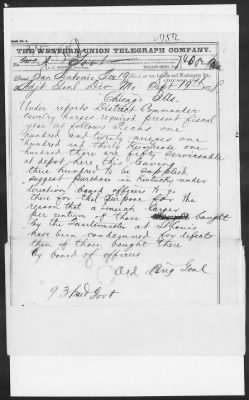 252
THE WESTERN UNION TELEGRAPH COMPANY.
Govt
San Antonio Tex 19
Asst Genl Div Mo Sept 19th
Chicago Ills.
Under reports District Commander
cavalry horses required present fiscal
year as follows one
hundred and sixty one
hundred and thirty
hundred there are fifty serviceable
at depot here, this leaving
three hundred to be supplied
suggest purchase in Kentucky under
direction board officers to go
there for that purpose for the
reason that a much larger
per centum of those bought
by the Quartermaster at St Louis
have been condemned for defects
than of those bought there
by board of officers
Ord Brig Genl
93 Paid Govt